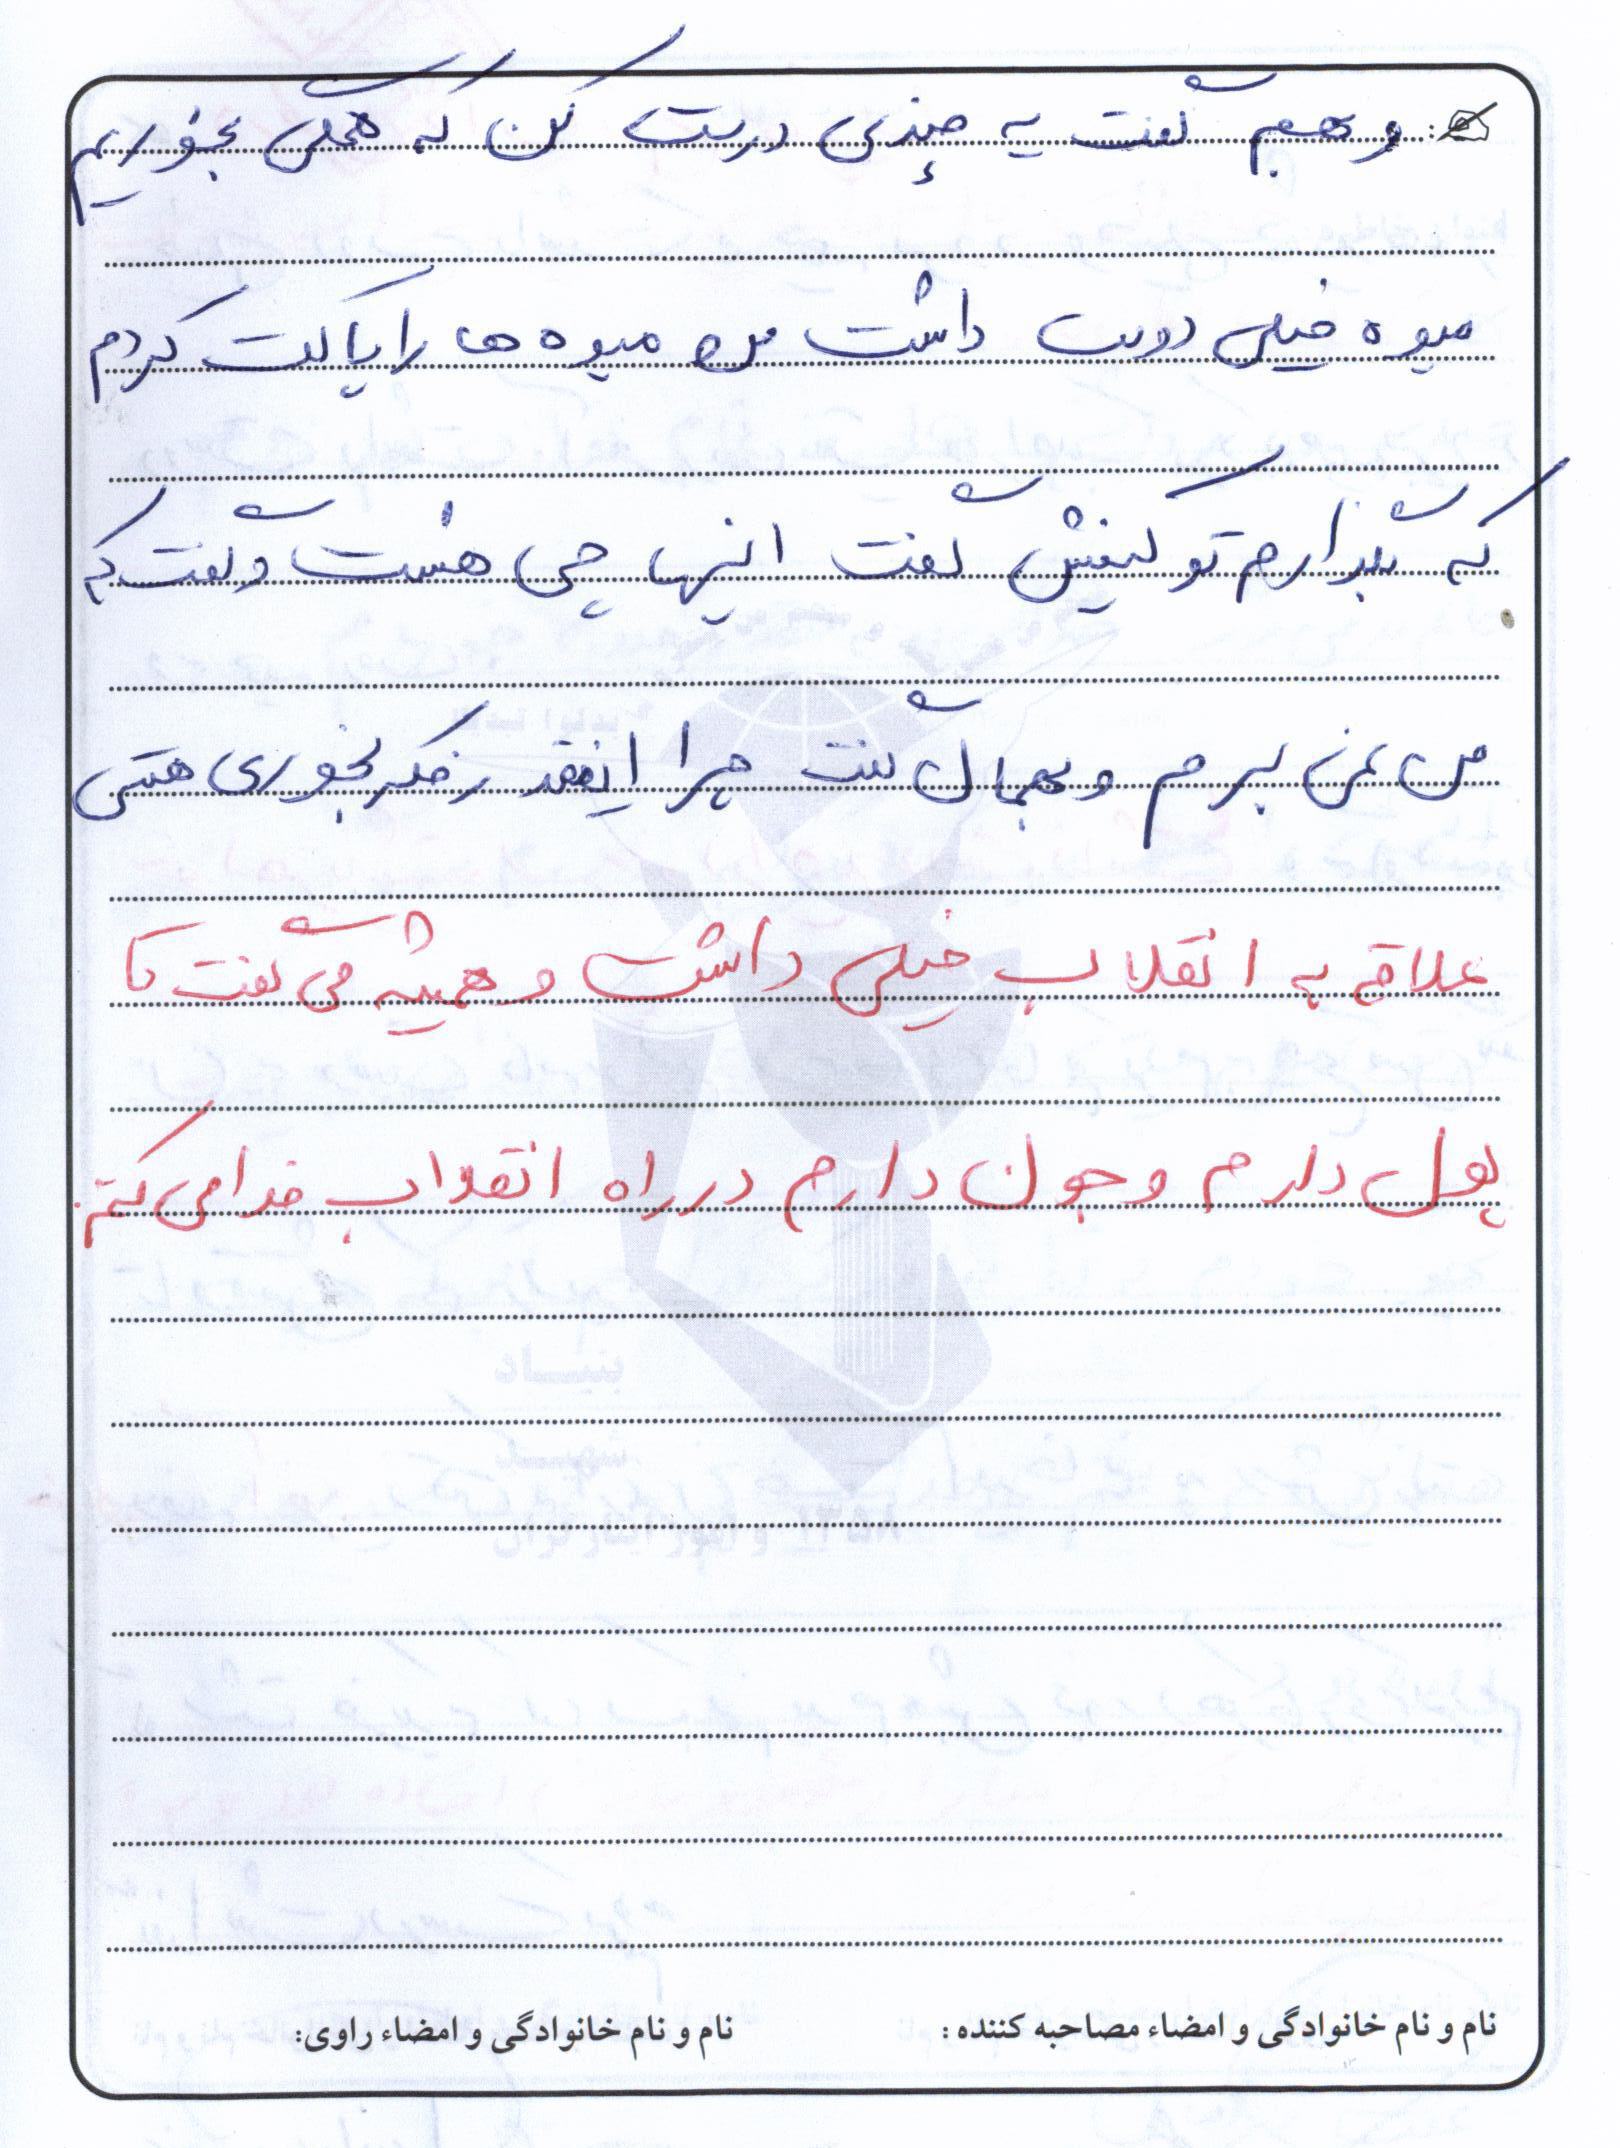 و بهم گفت یه چیزی درست کن که همگی بخوریم
میوه خیلی دوست داشت من میوه ها را پاکت کردم
که بگذارم تو کیفش گفت اینها چی هست و گفت که
من نمی برم و بهمان گفت چرا اینقدر فکر بخوری هستی
علاقه به انقلاب خیلی داشت و همیشه می گفت تا
پول دارم و جون دارم در راه انقلاب فدا می کنم.
نام و نام خانوادگی و امضاء مصاحبه کننده: نام و نام خانوادگی و امضاء راوی: